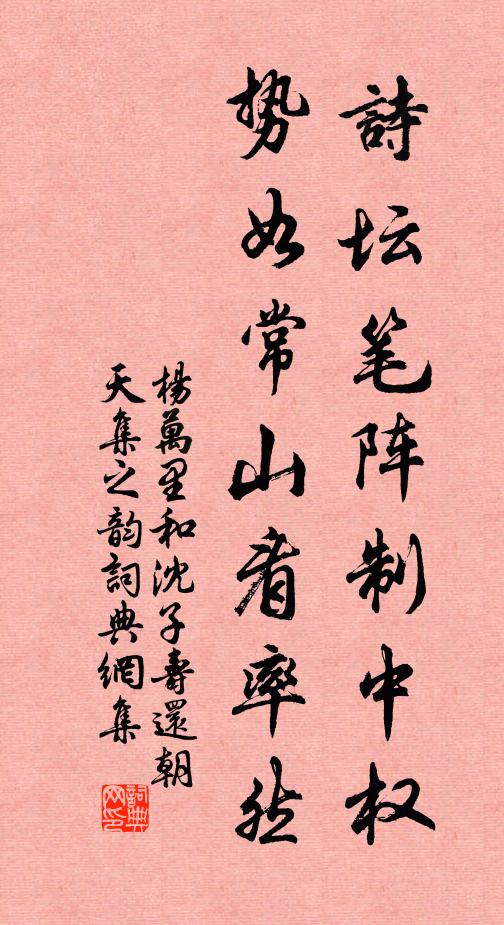 詩坛笔阵制中权
势如常山看率然
楊萬里和沈子壽還朝
天集之韵詞典網集
詞典网印